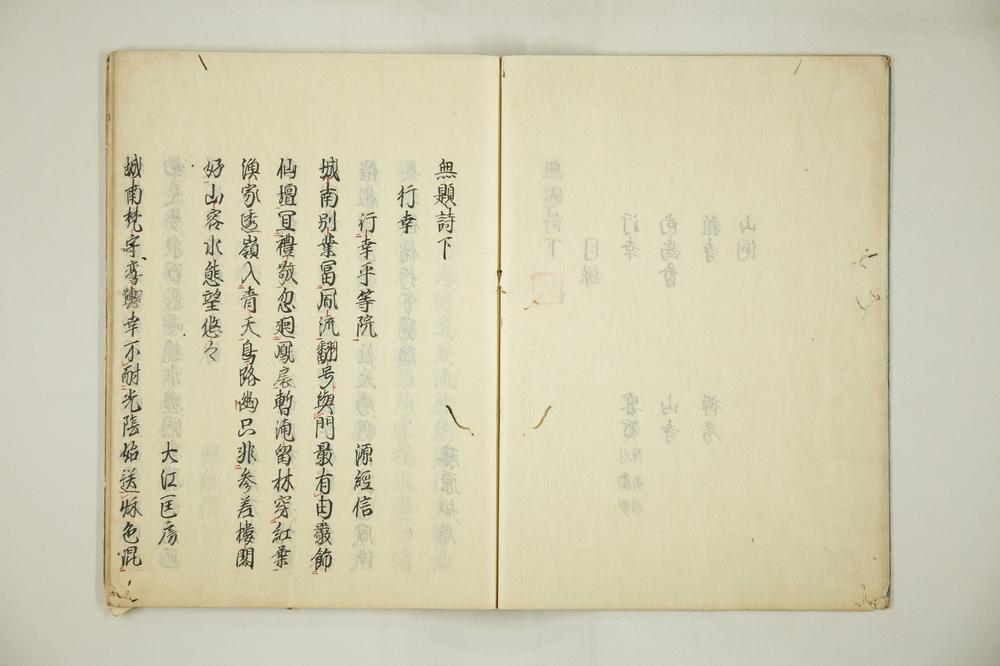 無題詩下
行幸
行幸平等院　源經信
城南別業冨風流翻号輿門最有由嚴節
仙壇冝禮敬忽廻鳳扆暫淹留林穿紅葉
漁家透嶺入青天鳥路幽只非參差樓閣
好山容水態望悠々
大江匡房
城南梵宇鸞輿幸不耐光陰始送秋色混